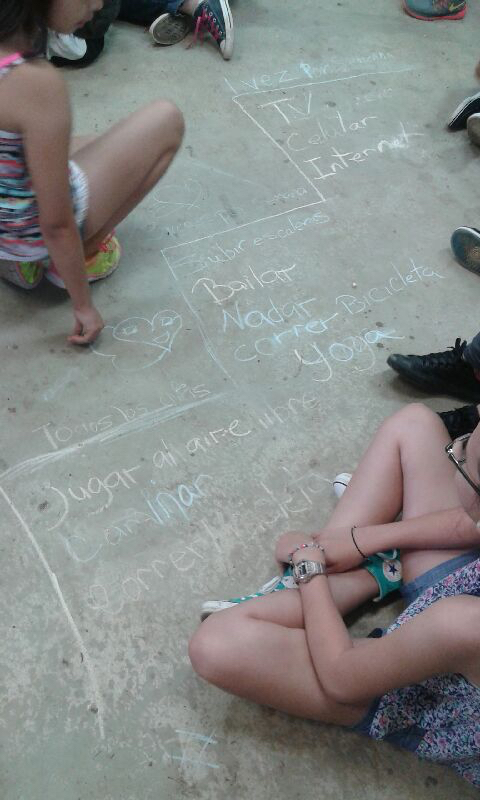 1 vez por semana
TV
Celular
Internet
Subir escaleras
Bailar
Nadar
correr Bicicleta
Yoga
Todos los días
Jugar al aire libre
Caminar
Correr bicicleta